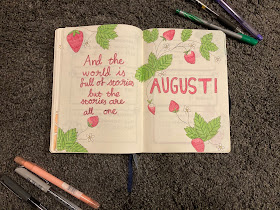 And the
world is
full of stories
but the
stories are
all one
AUGUST!